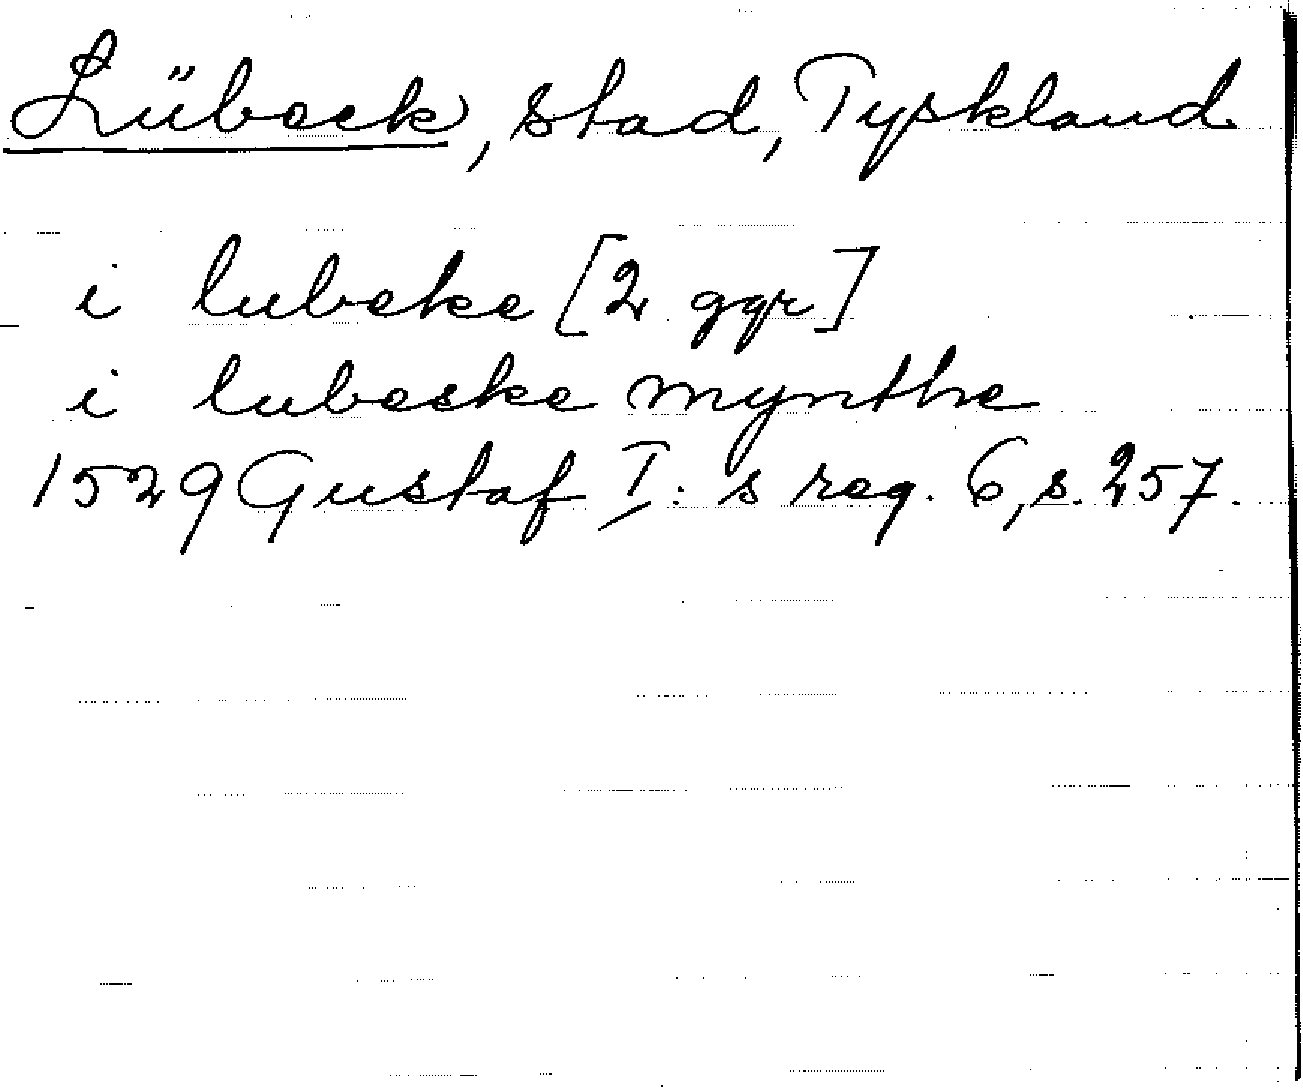 Lübeck, stad, Tyskland
i lubeke [2 ggr]
i lubeske mynthe
1529 Gustaf I: s reg. 6, s. 257.